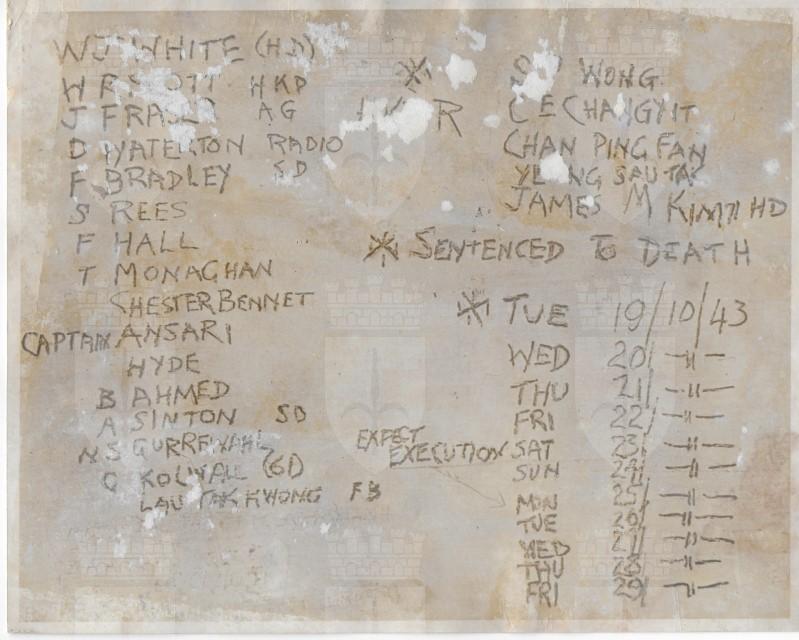 WJ WHITE (HD)
W R SCOTT HKD
J FRASER AG
D WATERTON RADIO
F BRADLEY SD
S REES
F HALL
T MONAGHAN
CHESTER BENNET
CAPTAIN ANSARI
HYDE
B AHMED
A SINTON SD
N S GURREWAHL
C KOLWALL (GD)
LAU TAK KWONG FB
WONG
C E CHANGYIT
CHAN PING FAN
YEUNG SAU TAK
JAMES M KIM HD
※ SENTENCED TO DEATH
※ TUE 19/10/43
WED 20/ -"-
THU 21/ -"-
FRI 22/ -"-
EXPECT
EXECUTION
SAT 23/ -"-
SUN 24/ -"-
MON 25/ -"-
TUE 26/ -"-
WED 27/ -"-
THU 28 -"-
FRI 29/ -"-